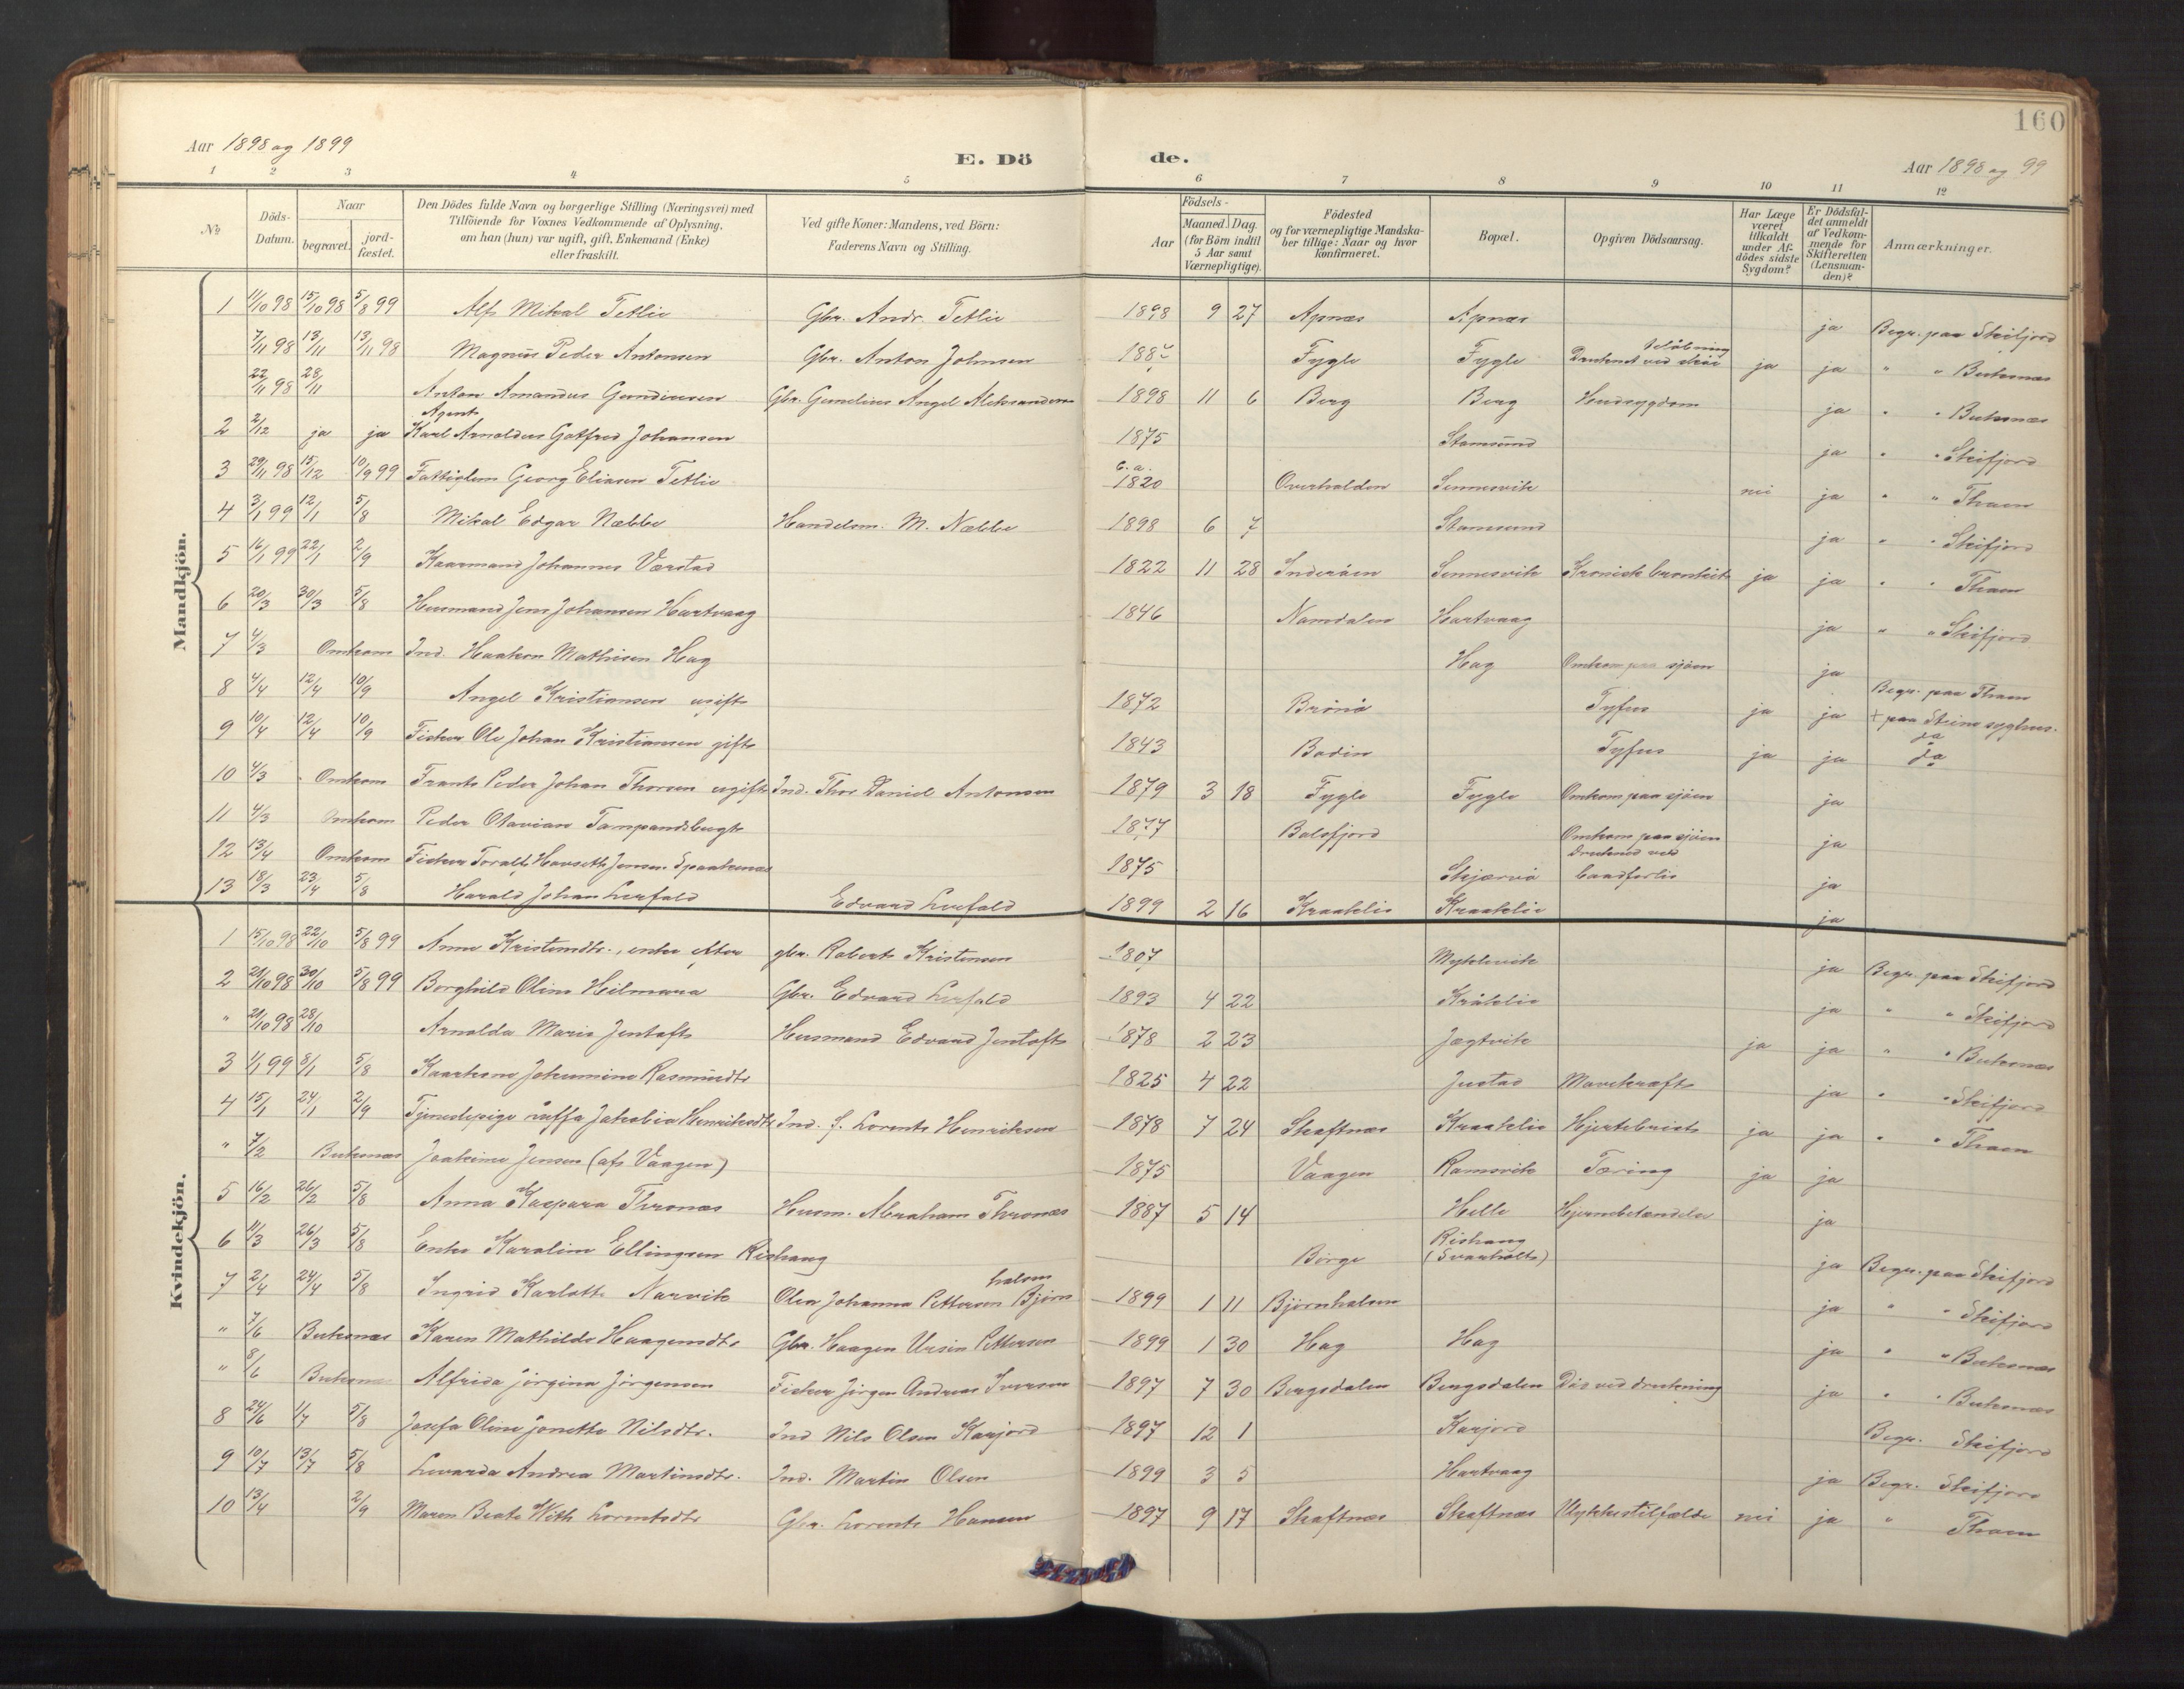 160
Aar 1898 og 1899
E. Dö de.
Aar 1898 og 99
1 2 3 4 5 6 7 8 9 10 11 12
No
Döds-Datum.
Naar
begravet.
jord-fæstet.
Den Dödes fulde Navn og borgerlige Stilling (Næringsvei) med
Tilföiende for Voxnes Vedkommende af Oplysning,
om han (hun) var ugift, gift, Enkemand (Enke)
eller fraskilt.
Ved gifte Koner: Mandens, ved Börn:
Faderens Navn og Stilling.
Födsels-
Aar
Maaned. Dag.
(for Börn indtil
5 Aar samt
Værnepligtige).
Födested
og for værnepligtige Mandska-
ber tillige: Naar og hvor
konfirmeret.
Bopæl.
Opgiven Dödsaarsag.
Har Læge
været
tilkaldt
under Af-
dödes sidste
Sygdom?
Er Dödsfal-
det anmeldt
af Vedkom-
mende for
Skifteretten
(Lensman-
den)?
Anmærkninger.
Mandkjön.
1 11/10 98 15/10 98 5/8 99 Alf Mikal Tetlie Gbr. Andr. Tetlie 1898 9 27 Apnæs Apnæs ja Begr. paa Skifjord
7/11 98 13/11 13/11 98 Magnus Peder Antonsen Gbr. Anton Johnsen Fygle Fygle Druknet ved ja ja " " Buksnæs
22/11 98 28/11 Anton Amandus Gbr. Angel 1898 11 6 Berg Berg Hudsygdom ja " " Buksnæs
Agent
2 2/12 ja ja Karl Arnoldus Gotfred Johansen 1875 Stamsund ja " " Skifjord
3 29/11 98 15/12 10/9 99 Fattiglem Georg Eliasen Tetlie c.a. 1820 Overhalden Sennesvik nei ja " " Thaen
4 3/1 99 12/1 5/8 Mikal Edgar Næbbe Handelsm. M. Næbbe 1898 6 7 Stamsund ja " " Skifjord
5 16/1 99 22/1 2/9 Kaarmand Johannes Værstad 1822 11 28 Inderöen Sennesvik Kronisk bronkit ja ja " " Thaen
6 20/3 30/3 5/8 Husmand Jens Johansen Hartvaag 1846 Namdalen Hartvaag ja " " Skifjord
7 4/3 Omkom Ind. Haakon Mathisen Hag Hag Omkom paa sjöen ja
8 4/4 12/4 10/9 Angel Kristiansen ugift 1872 Brönö Tyfus ja ja Begr. paa Thaen
+ paa Stene syghus.
9 10/4 12/4 10/9 Fisker Ole Johan Kristiansen gift 1843 Bodin Tyfus ja ja do do
10 4/3 Omkom Frants Peder Johan Thorsen ugift Ind. Thor Daniel Antonsen 1879 3 18 Fygle Fygle Omkom paa sjöen ja
11 4/3 Omkom Peder Otavian 1877 Balsfjord Omkom paa sjöen ja
12 13/4 Omkom Fisker Toralf Jensen Spaaknæs 1875 Skjærvö druknet ved baadforlis ja
13 18/3 23/4 5/8 Harald Johan Lerfald Edvard Lerfald 1899 2 16 Kraaklie Kraaklie ja
Kvindekjön.
1 15/10 98 22/10 5/8 99 Anne Kristensdtr., enke efter gbr. Robert Kristensen 1807 Myklevik ja Begr. paa Skifjord
2 21/10 98 30/10 5/8 99 Borghild Oline Hilmara Gbr. Edvard Lerfald 1893 4 22 Kråklie ja " " Skifjord
" 21/10 98 28/10 Arnolda Marie Jentoft Husmand Edvard Jentoft 1878 2 23 Jægtvik ja ja " " Buksnæs
3 1/1 99 8/1 5/8 Kaarkone Jakumine Rasmusdtr 1825 4 22 Justad Mavekræft ja " " Skifjord
4 15/1 24/1 2/9 Tjenestepige Jakobia Henriksdtr Ind. J. Lorents Henriksen 1878 7 24 Skaftnæs Kraaklie Hjertebrist ja ja " " Thaen
" 7/2 Buksnæs Joakime Jensen (af Vaagen) 1875 Vaagen Ramsvik Tæring ja ja
5 16/2 26/2 5/8 Anna Kaspara Thronæs Husm. Abraham Thronæs 1887 5 14 Helle Hjernebetændelse ja
6 11/3 26/3 5/8 Enke Karoline Ellingsen Rishaug Borge Rishaug (Svarholt) ja Begr. paa Skifjord
7 2/4 24/4 5/8 Ingrid Karlotte Narvik Olea Johanna Pettersen Björnholmen 1899 1 11 Björnholmen ja " " Skifjord
" 7/6 Buksnæs Karen Mathilde Haagensdtr Gbr. Haagen Ursin Pettersen 1899 1 30 Hag Hag ja " " Buksnæs
" 8/6 Buksnæs Alfrida Jörgina Jörgensen Fisker Jörgen Andreas Iversen 1897 7 30 Bergsdalen Bergsdalen Död ved drukning ja " " Buksnæs
8 24/6 1/7 5/8 Josefa Oline Jonette Nilsdtr. Ind Nils Olsen Karjord 1897 12 1 Karjord Begr. Skifjord
9 10/7 13/7 5/8 Andrea Martinsdtr. Ind. Martin Olsen 1899 3 5 Hartvaag ja Begr. Skifjord
10 13/4 2/9 Maren Beate With Lorentsdtr Gbr. Lorents Hansen 1897 9 17 Skaftnæs Skaftnæs Ulykkestilfælde nei ja " Thaen